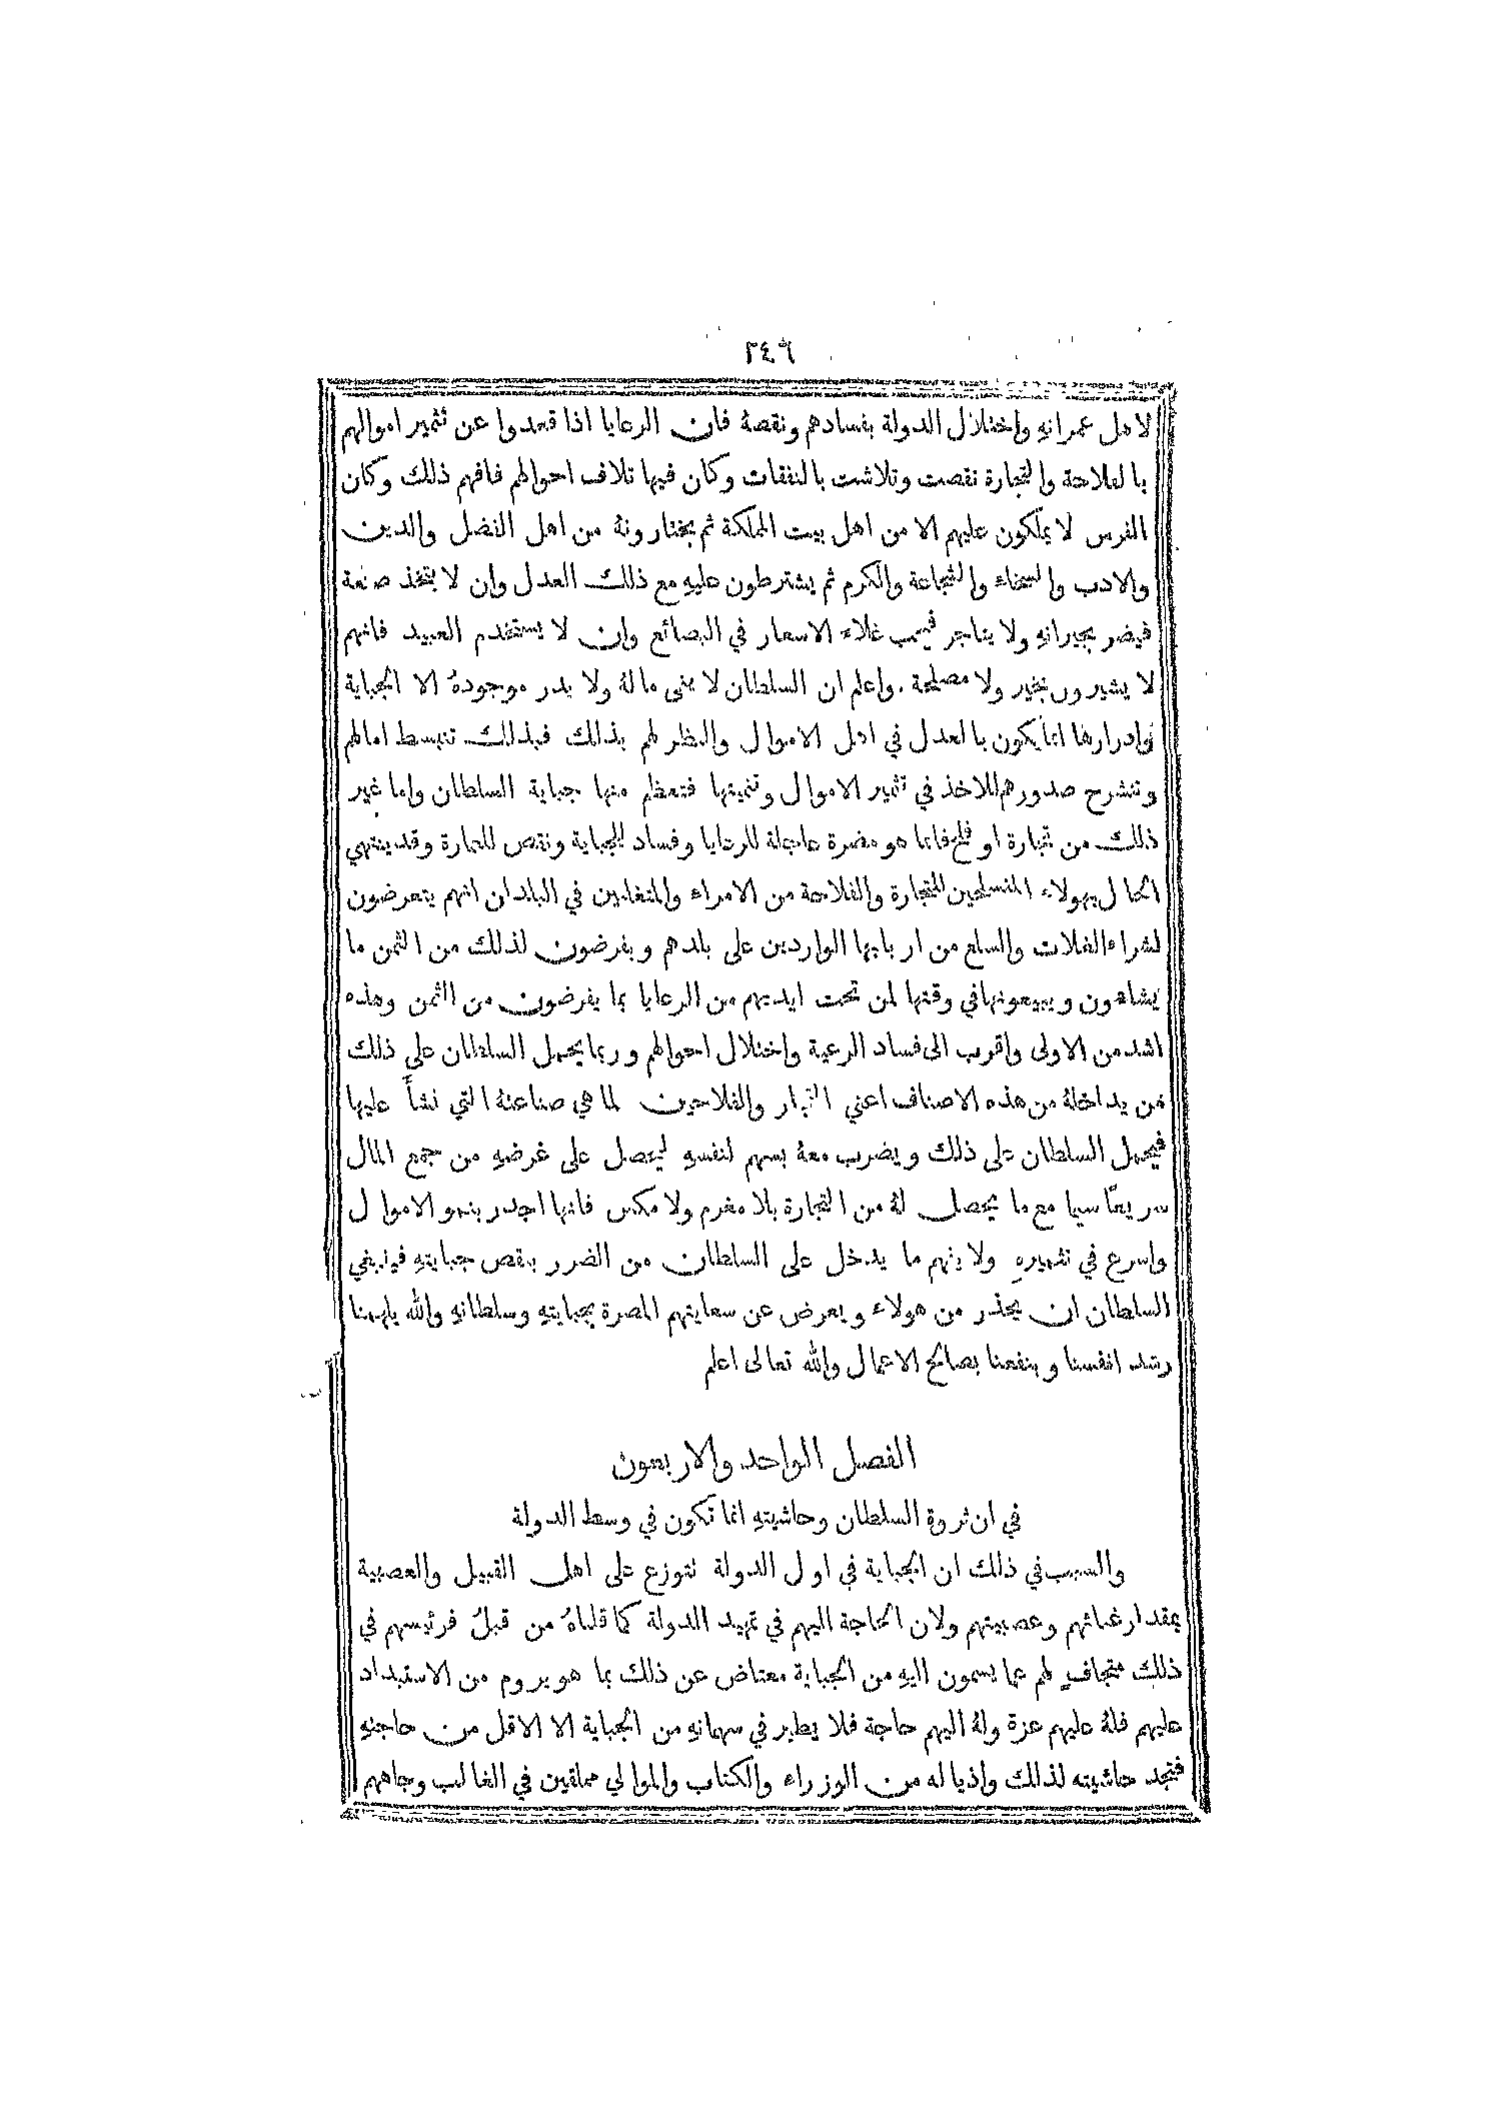 ٢٤٦
لاهل عمرانه واختلال الدولة بفسادهم ونقصه فان الرعايا اذا قعدوا عن تثمير اموالهم
بالفلاحة والتجارة نقصت وتلاشت بالنفقات وكان فيها تلاف احوالهم فافهم ذلك وكان
الفرس لا يملّكون عليهم الا من اهل بيت المملكة ثم يختارونه من اهل الفضل والدين
والادب والسخاء والشجاعة والكرم ثم يشترطون عليه مع ذلك العدل وان لا يتخذ صنعة
فيضر بجيرانه ولا يتاجر فيحب غلاء الاسعار في البضائع وان لا يستخدم العبيد فانهم
لا يشيرون بخير ولا مصلحة . واعلم ان السلطان لا ينمى ماله ولا يدر موجودهُ الا الجباية
وادرارها انما يكون بالعدل في اهل الاموال والنظر لهم بذلك فبذلك تنبسط امالهم
وتنشرح صدورهم للاخذ في تثمير الاموال وتنميتها فتعظم منها جباية السلطان واما غير
ذلك من تجارة او فلح فانما هو مضرة عاجلة للرعايا وفساد للجباية ونقص للعمارة وقد ينتهي
الحال بهولاء المنسلحين للتجارة والفلاحة من الامراء والمتغلبين في البلدان انهم يتعرضون
لشراء الغلات والسلع من اربابها الواردين على بلدهم ويفرضون لذلك من الثمن ما
يشاءون ويبيعونها في وقتها لمن تحت ايديهم من الرعايا بما يفرضون من الثمن وهذه
اشد من الاولى واقرب الى فساد الرعية واختلال احوالهم وربما يحمل السلطان على ذلك
من يداخله من هذه الاصناف اعني التجار والفلاحين لما هي صناعته التي نشأَ عليها
فيحمل السلطان على ذلك ويضرب معه بسهم لنفسه ليحصل على غرضه من جمع المال
سريعًا سيما مع ما يحصل له من التجارة بلا مغرم ولا مكس فانها اجدر بنمو الاموال
واسرع في تثميره ولا يفهم ما يدخل على السلطان من الضرر بنقص جبايته فينبغي
السلطان ان يحذر من هولاء ويعرض عن سعايتهم المضرة بجبايته وسلطانه والله يلهمنا
رشد انفسنا وينفعنا بصالح الاعمال والله تعالى اعلم
الفصل الواحد والاربعون
في ان ثروة السلطان وحاشيته انما تكون في وسط الدولة
والسبب في ذلك ان الجباية في اول الدولة تتوزع على اهل القبيل والعصبية
بمقدار غنائهم وعصبيتهم ولان الحاجة اليهم في تمهيد الدولة كما قلناهُ من قبلُ فرئيسهم في
ذلك متجافٍ لهم عما يسمون اليه من الجباية معتاض عن ذلك بما هو يروم من الاستبداد
عليهم فله عليهم عزة وله اليهم حاجة فلا يطير في سهمانه من الجباية الا الاقل من حاجته
فتجد حاشيته لذلك واذياله من الوزراء والكتاب والموالي مملقين في الغالب وجاههم